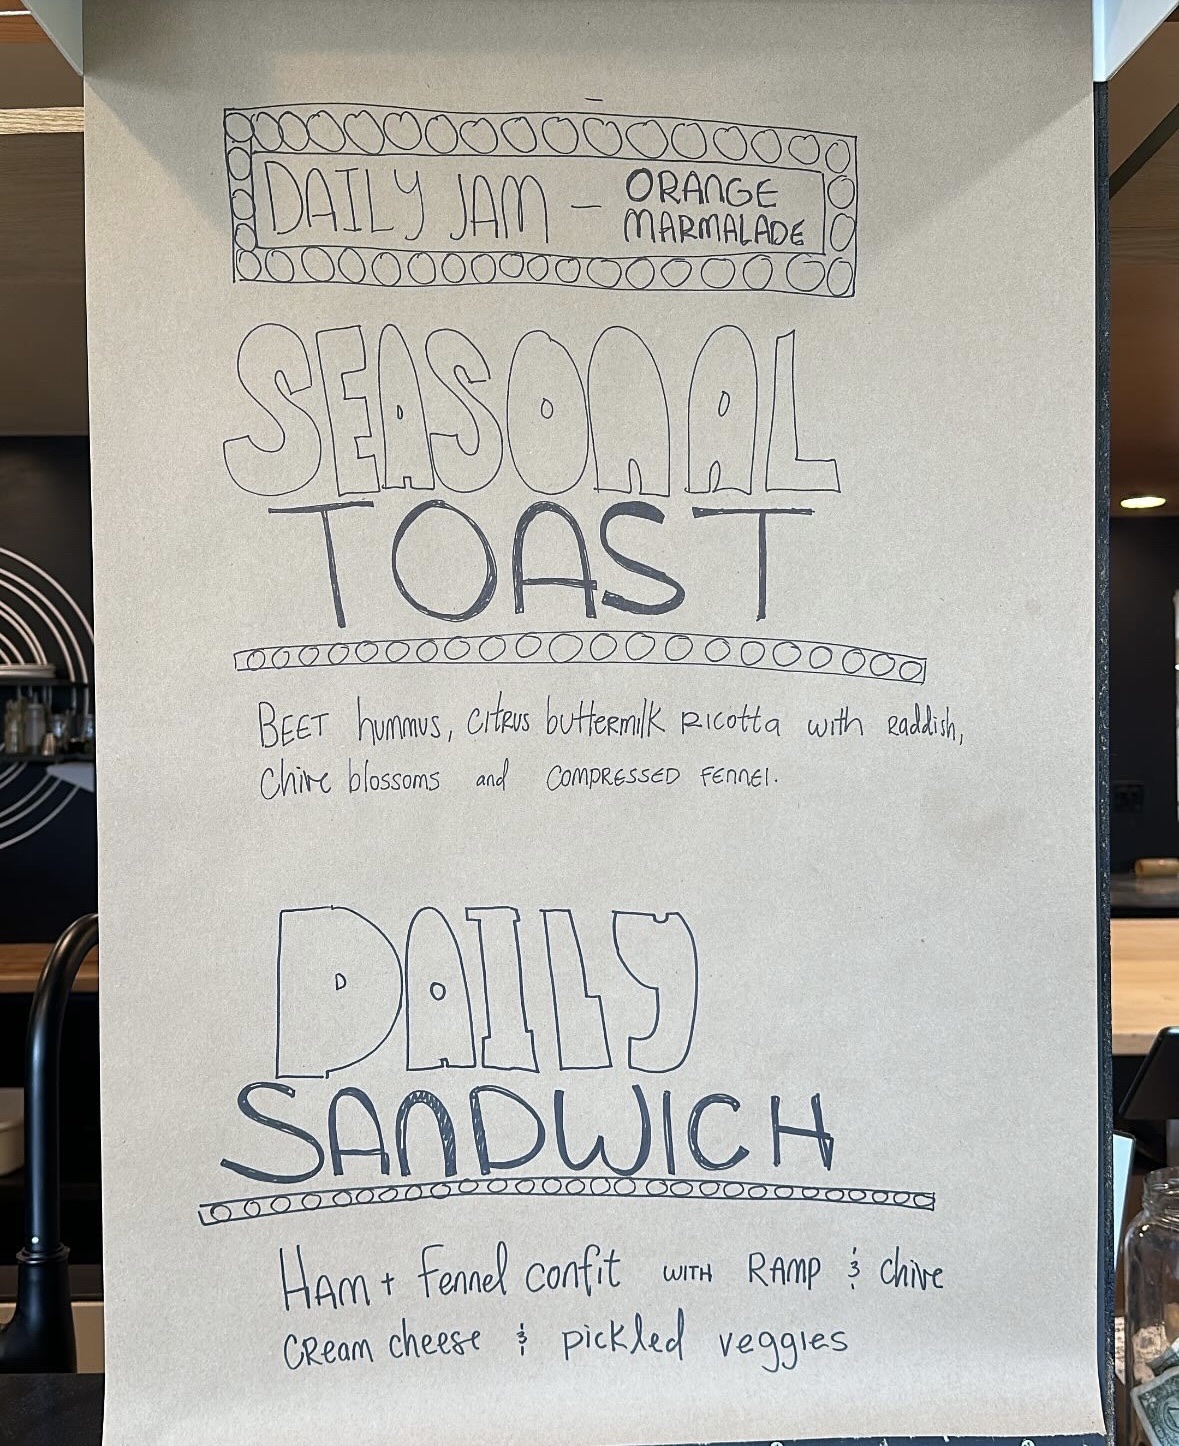 DAILY JAM - ORANGE MARMALADE
SEASONAL
TOAST
BEET hummus, citrus buttermilk Ricotta with Raddish,
Chive blossoms and COMPRESSED FENNEL.
DAILY
SANDWICH
HAM + Fennel confit WITH RAMP & chive
CREAM cheese & pickled veggies